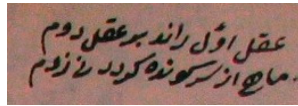 عقل اوّل راند بر عقل دوم
ماهی از سر کونده کردد نی زدم